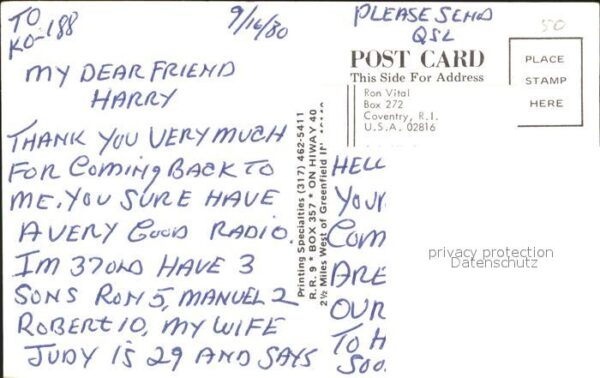 TO
KO-188
9/16/80
MY DEAR FRIEND
HARRY
THANK YOU VERY MUCH
FOR COMING BACK TO
ME. YOU SURE HAVE
A VERY GOOD RADIO.
IM 37 OLD HAVE 3
SONS RON 5, MANUEL 2
ROBERT 10, MY WIFE
JUDY IS 29 AND SAYS
Printing Specialties (317) 462-5411
R.R. 9 * BOX 357 * ON HIWAY 40
2½ Miles West of Greenfield
PLEASE SEND
QSL
50
POST CARD
This Side For Address
PLACE
STAMP
HERE
Ron Vital
Box 272
Coventry, R.I.
U.S.A. 02816
HELL
YOUR
COM
ARE
OUR
TO H
SOO
privacy protection
Datenschutz